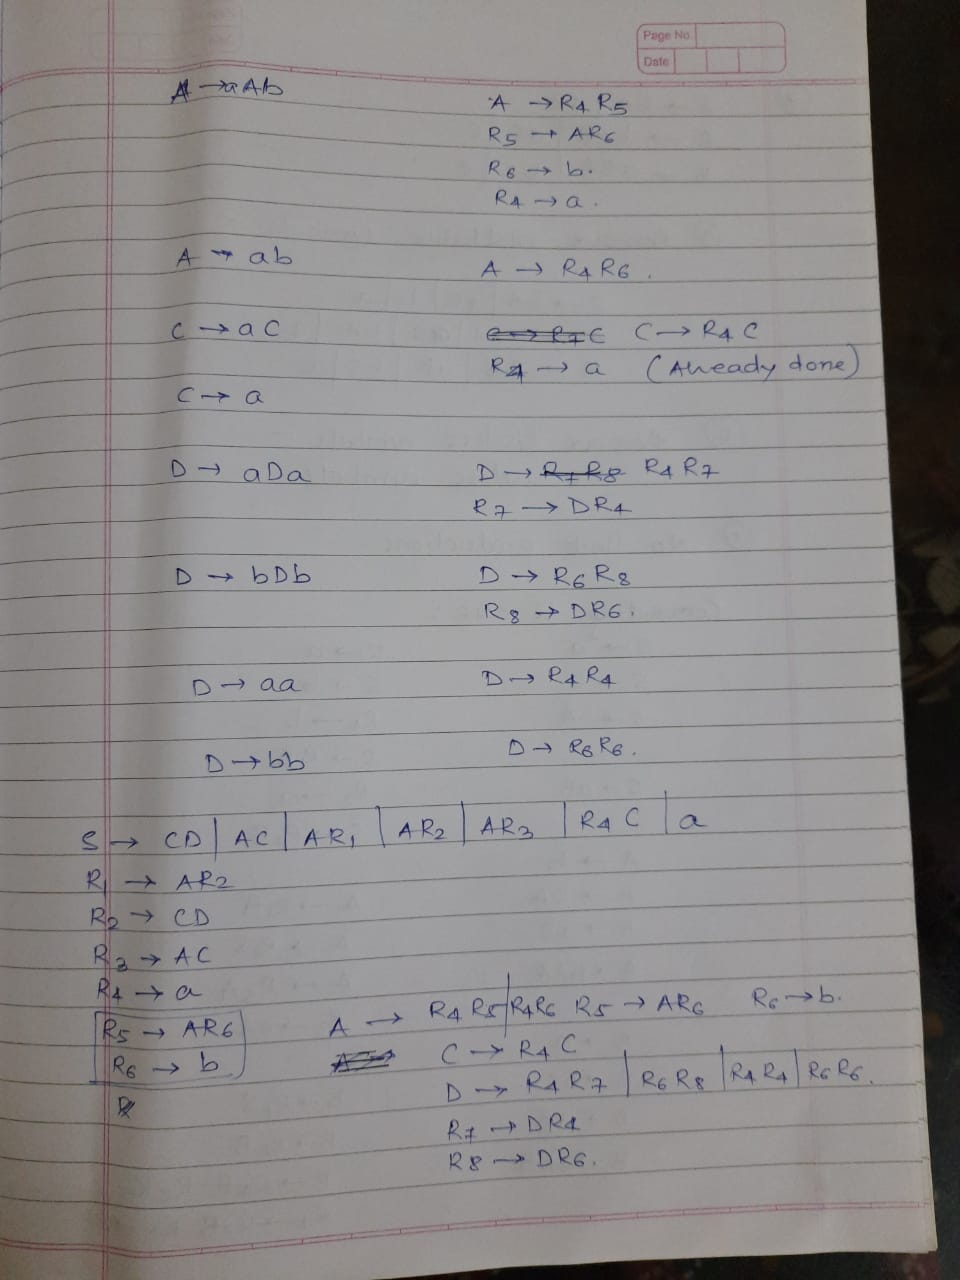 Page No
Date
A → aAb A → R4 R5
R5 → AR6
R6 → b.
R4 → a.
A → ab A → R4 R6.
C → aC C → R7C C → R4 C
R4 → a (Already done)
C → a
D → aDa D → R7 R8 R4 R7
R7 → DR4
D → bDb D → R6 R8
R8 → DR6.
D → aa D → R4 R4
D → bb D → R6 R6.
S → CD | AC | AR1 | AR2 | AR3 | R4 C | a
R1 → AR2
R2 → CD
R3 → AC
R4 → a
R5 → AR6 A → R4 R5 | R4R6 R5 → AR6 R6 → b.
R6 → b C → R4 C
D → R4 R7 | R6 R8 | R4 R4 | R6 R6.
R7 → DR4
R8 → DR6.